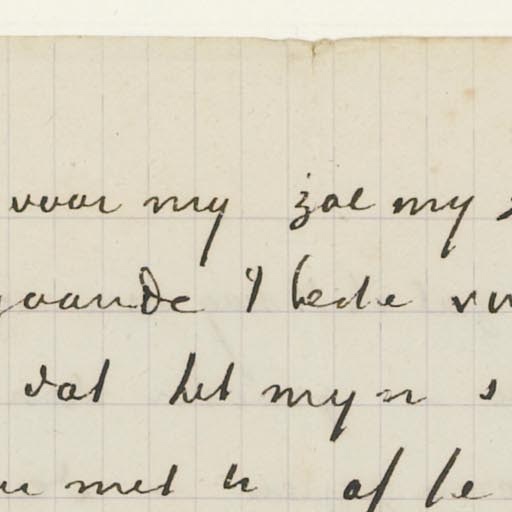 voor my zal my
gaande
dat het myn s
met u af te